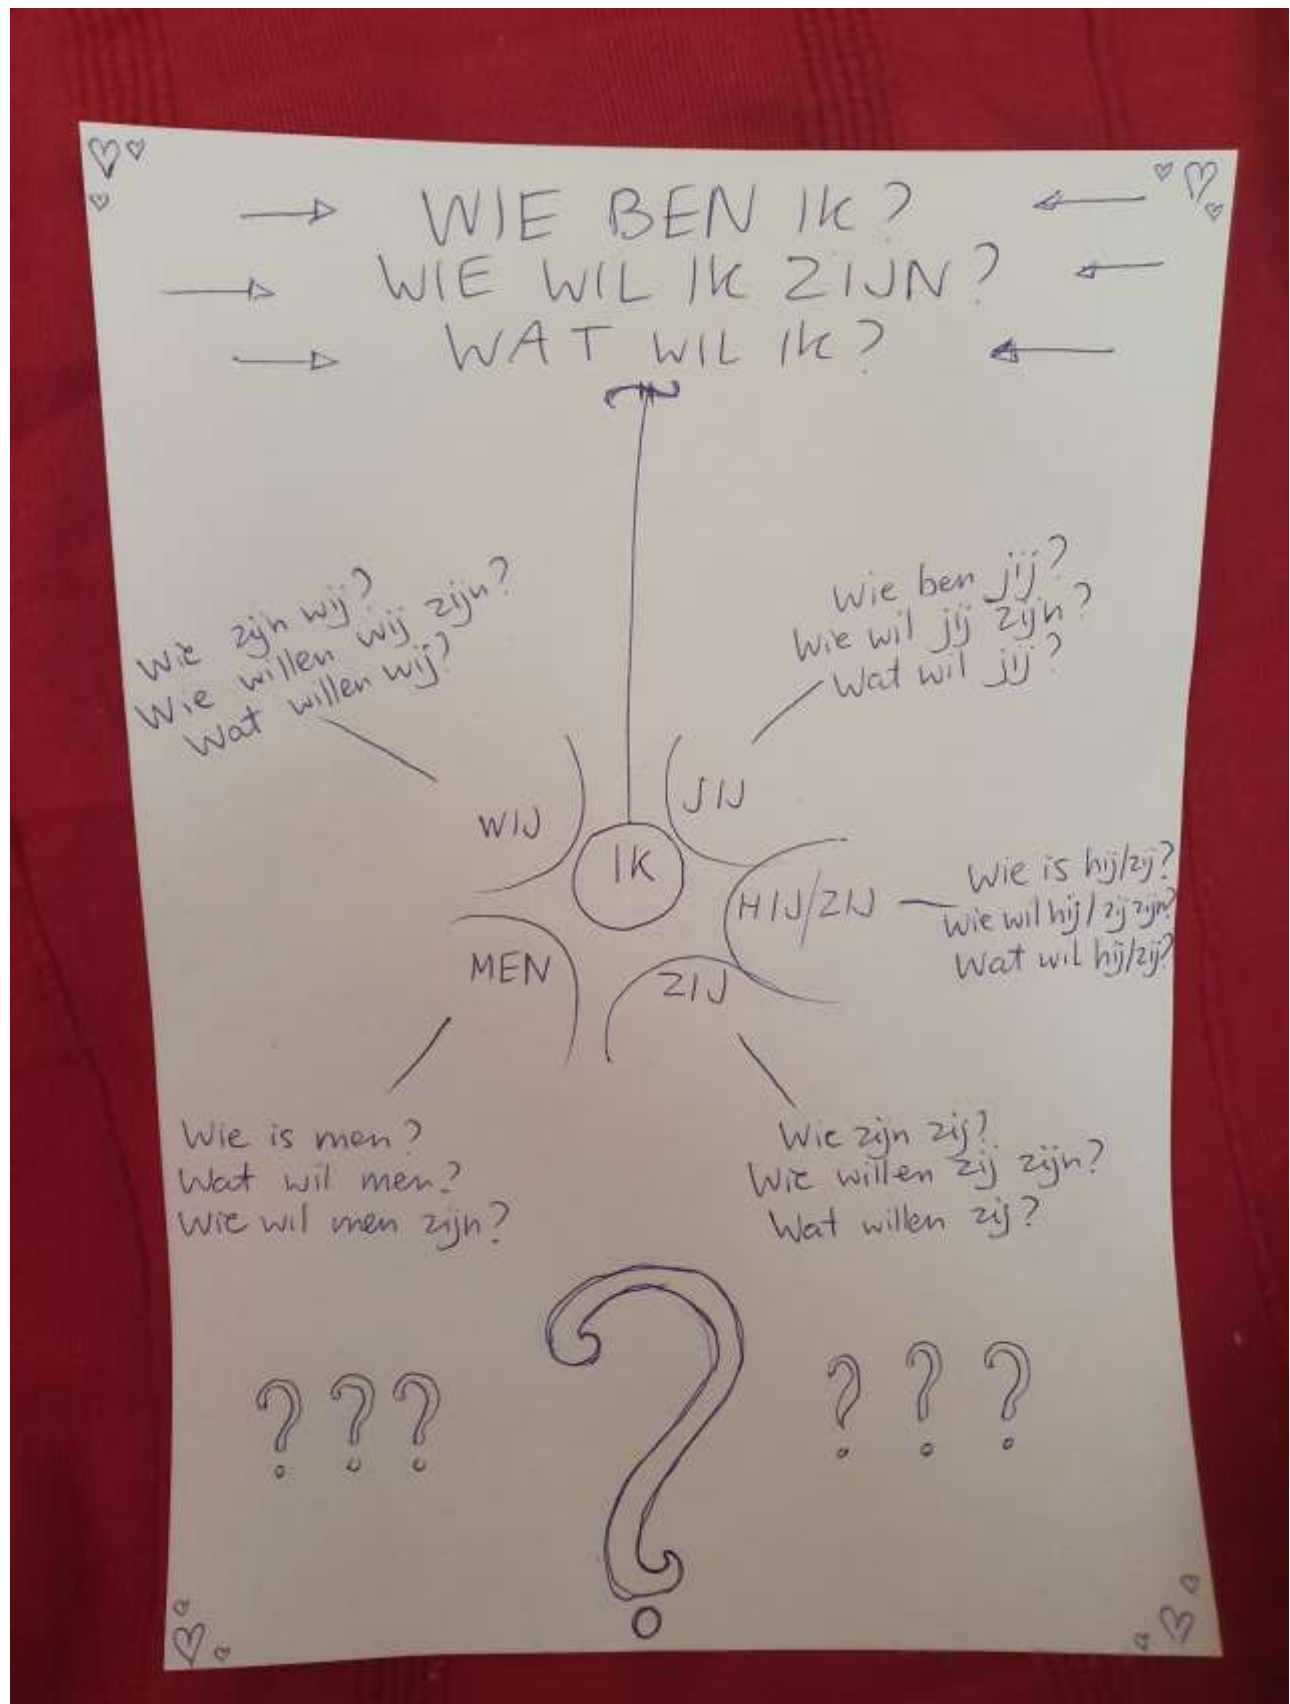 WIE BEN IK?
WIE WIL IK ZIJN?
WAT WIL IK?
Wie zijn wij?
Wie willen wij zijn?
Wat willen wij?
Wie ben jij?
Wie wil jij zijn?
Wat wil jij?
WIJ
JIJ
IK
HIJ/ZIJ
Wie is hij/zij?
Wie wil hij/zij zijn?
Wat wil hij/zij?
MEN
ZIJ
Wie is men?
Wat wil men?
Wie wil men zijn?
Wie zijn zij?
Wie willen zij zijn?
Wat willen zij?
? ? ?
?
? ? ?